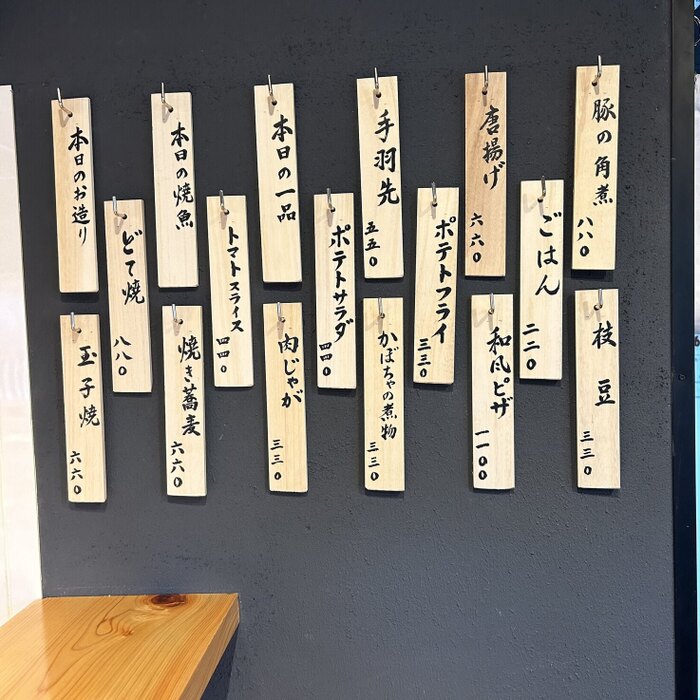 豚の角煮 八八〇
唐揚げ 六六〇
手羽先 五五〇
本日の一品
本日の焼魚
本日のお造り
ごはん 二二〇
ポテトフライ 三三〇
ポテトサラダ 四四〇
トマトスライス 四四〇
どて焼 八八〇
枝豆 三三〇
和風ピザ 一一〇〇
かぼちゃの煮物 三三〇
肉じゃが 三三〇
焼き蕎麦 六六〇
玉子焼 六六〇